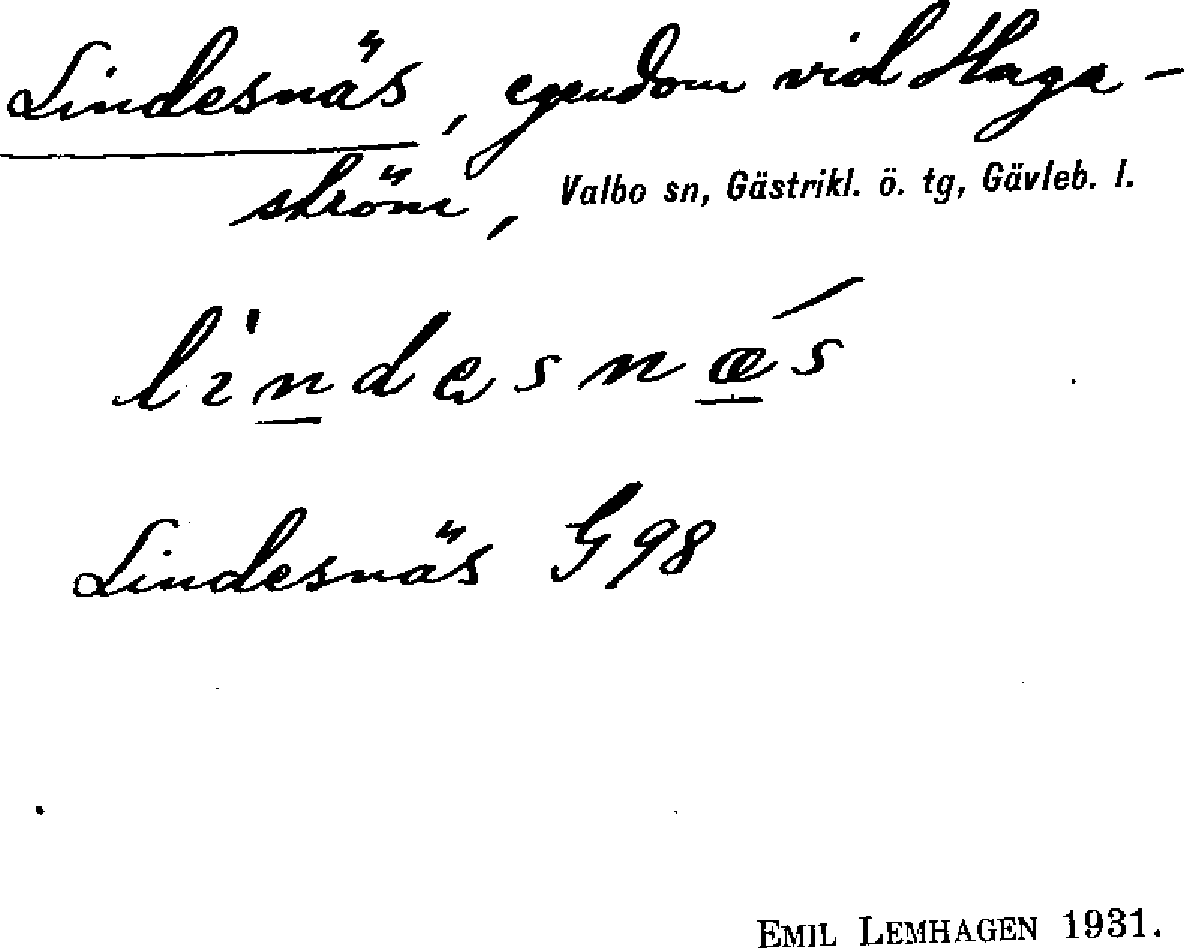 Lindesnäs, egendom vid Haga-
ström, Valbo sn, Gästrikl. ö. tg, Gävleb. l.
lindesnæ´s
Lindesnäs G 98
EMIL LEMHAGEN 1931.